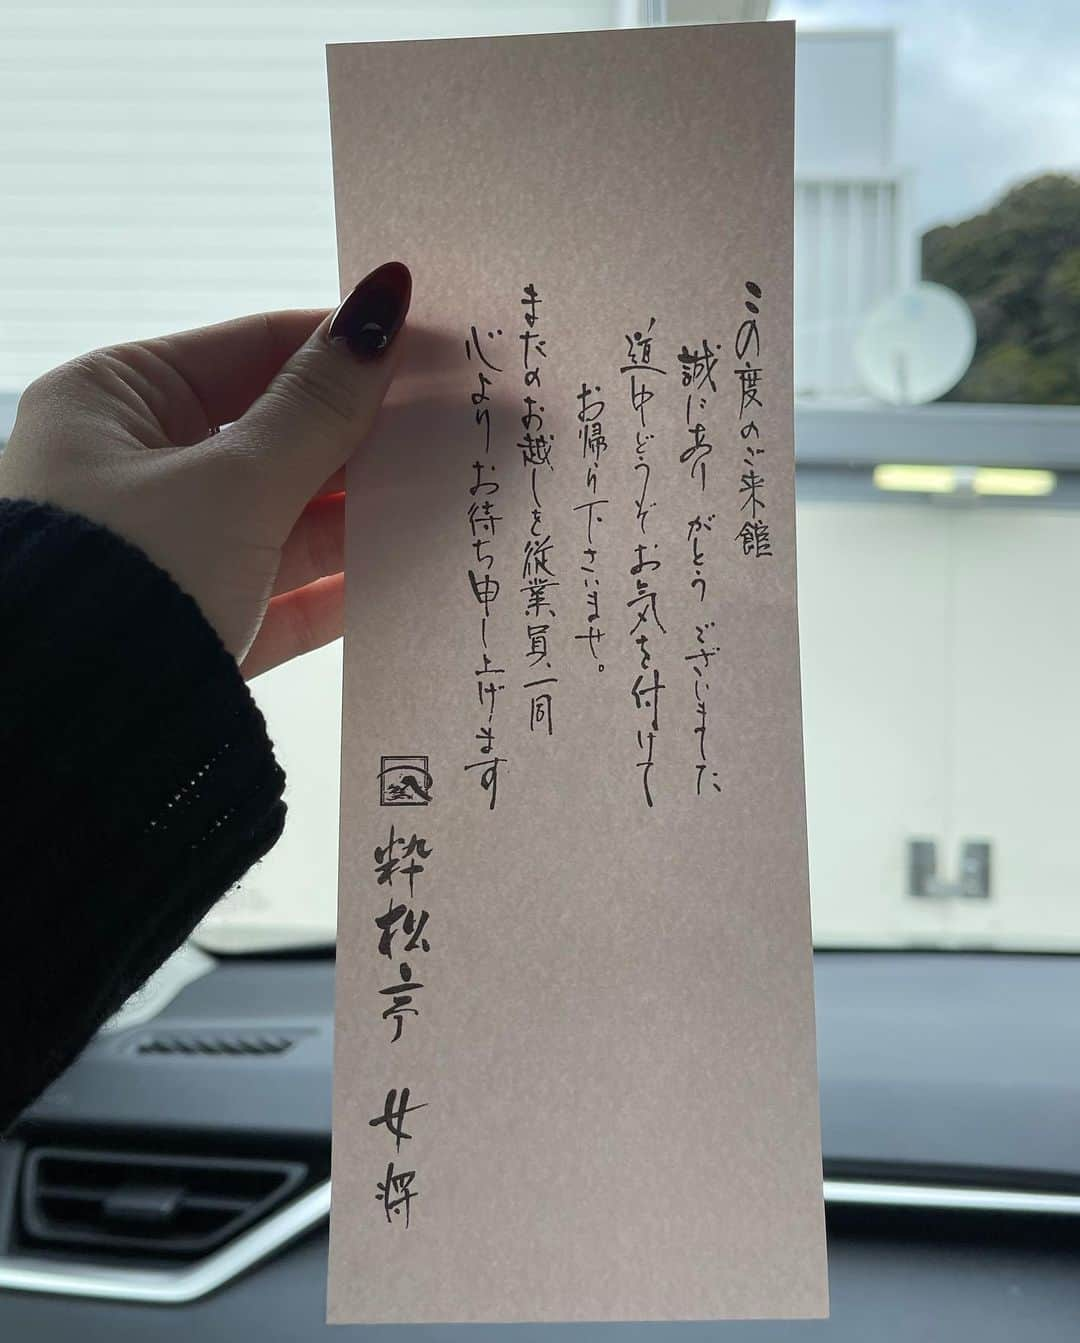 この度のご来館
誠にありがとうございました
道中どうぞお気を付けて
お帰り下さいませ。
またのお越しを従業員一同
心よりお待ち申し上げます
粋松亭 女将